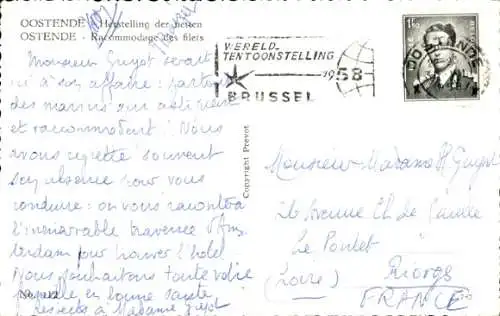 OOSTENDE - Herstelling der netten
OSTENDE - Racommodage des filets
Monsieur Guyot serait
ici à son affaire : partout
des marins qui
et raccommodent ! Nous
avons regretté souvent
son absence pour vous
conduire : on vous racontera
l'inénarrable traversée d'Ams
terdam pour trouver l'hôtel
Nous souhaitons toute votre
famille en bonne santé
à Madame Guyot
Copyright Prevot
WERELD-
TENTOONSTELLING
1958
BRUSSEL
OOSTENDE
Monsieur Madame Guyot
Avenue Ch de Gaulle
Le Pontet
(Loire) Riorges
FRANCE